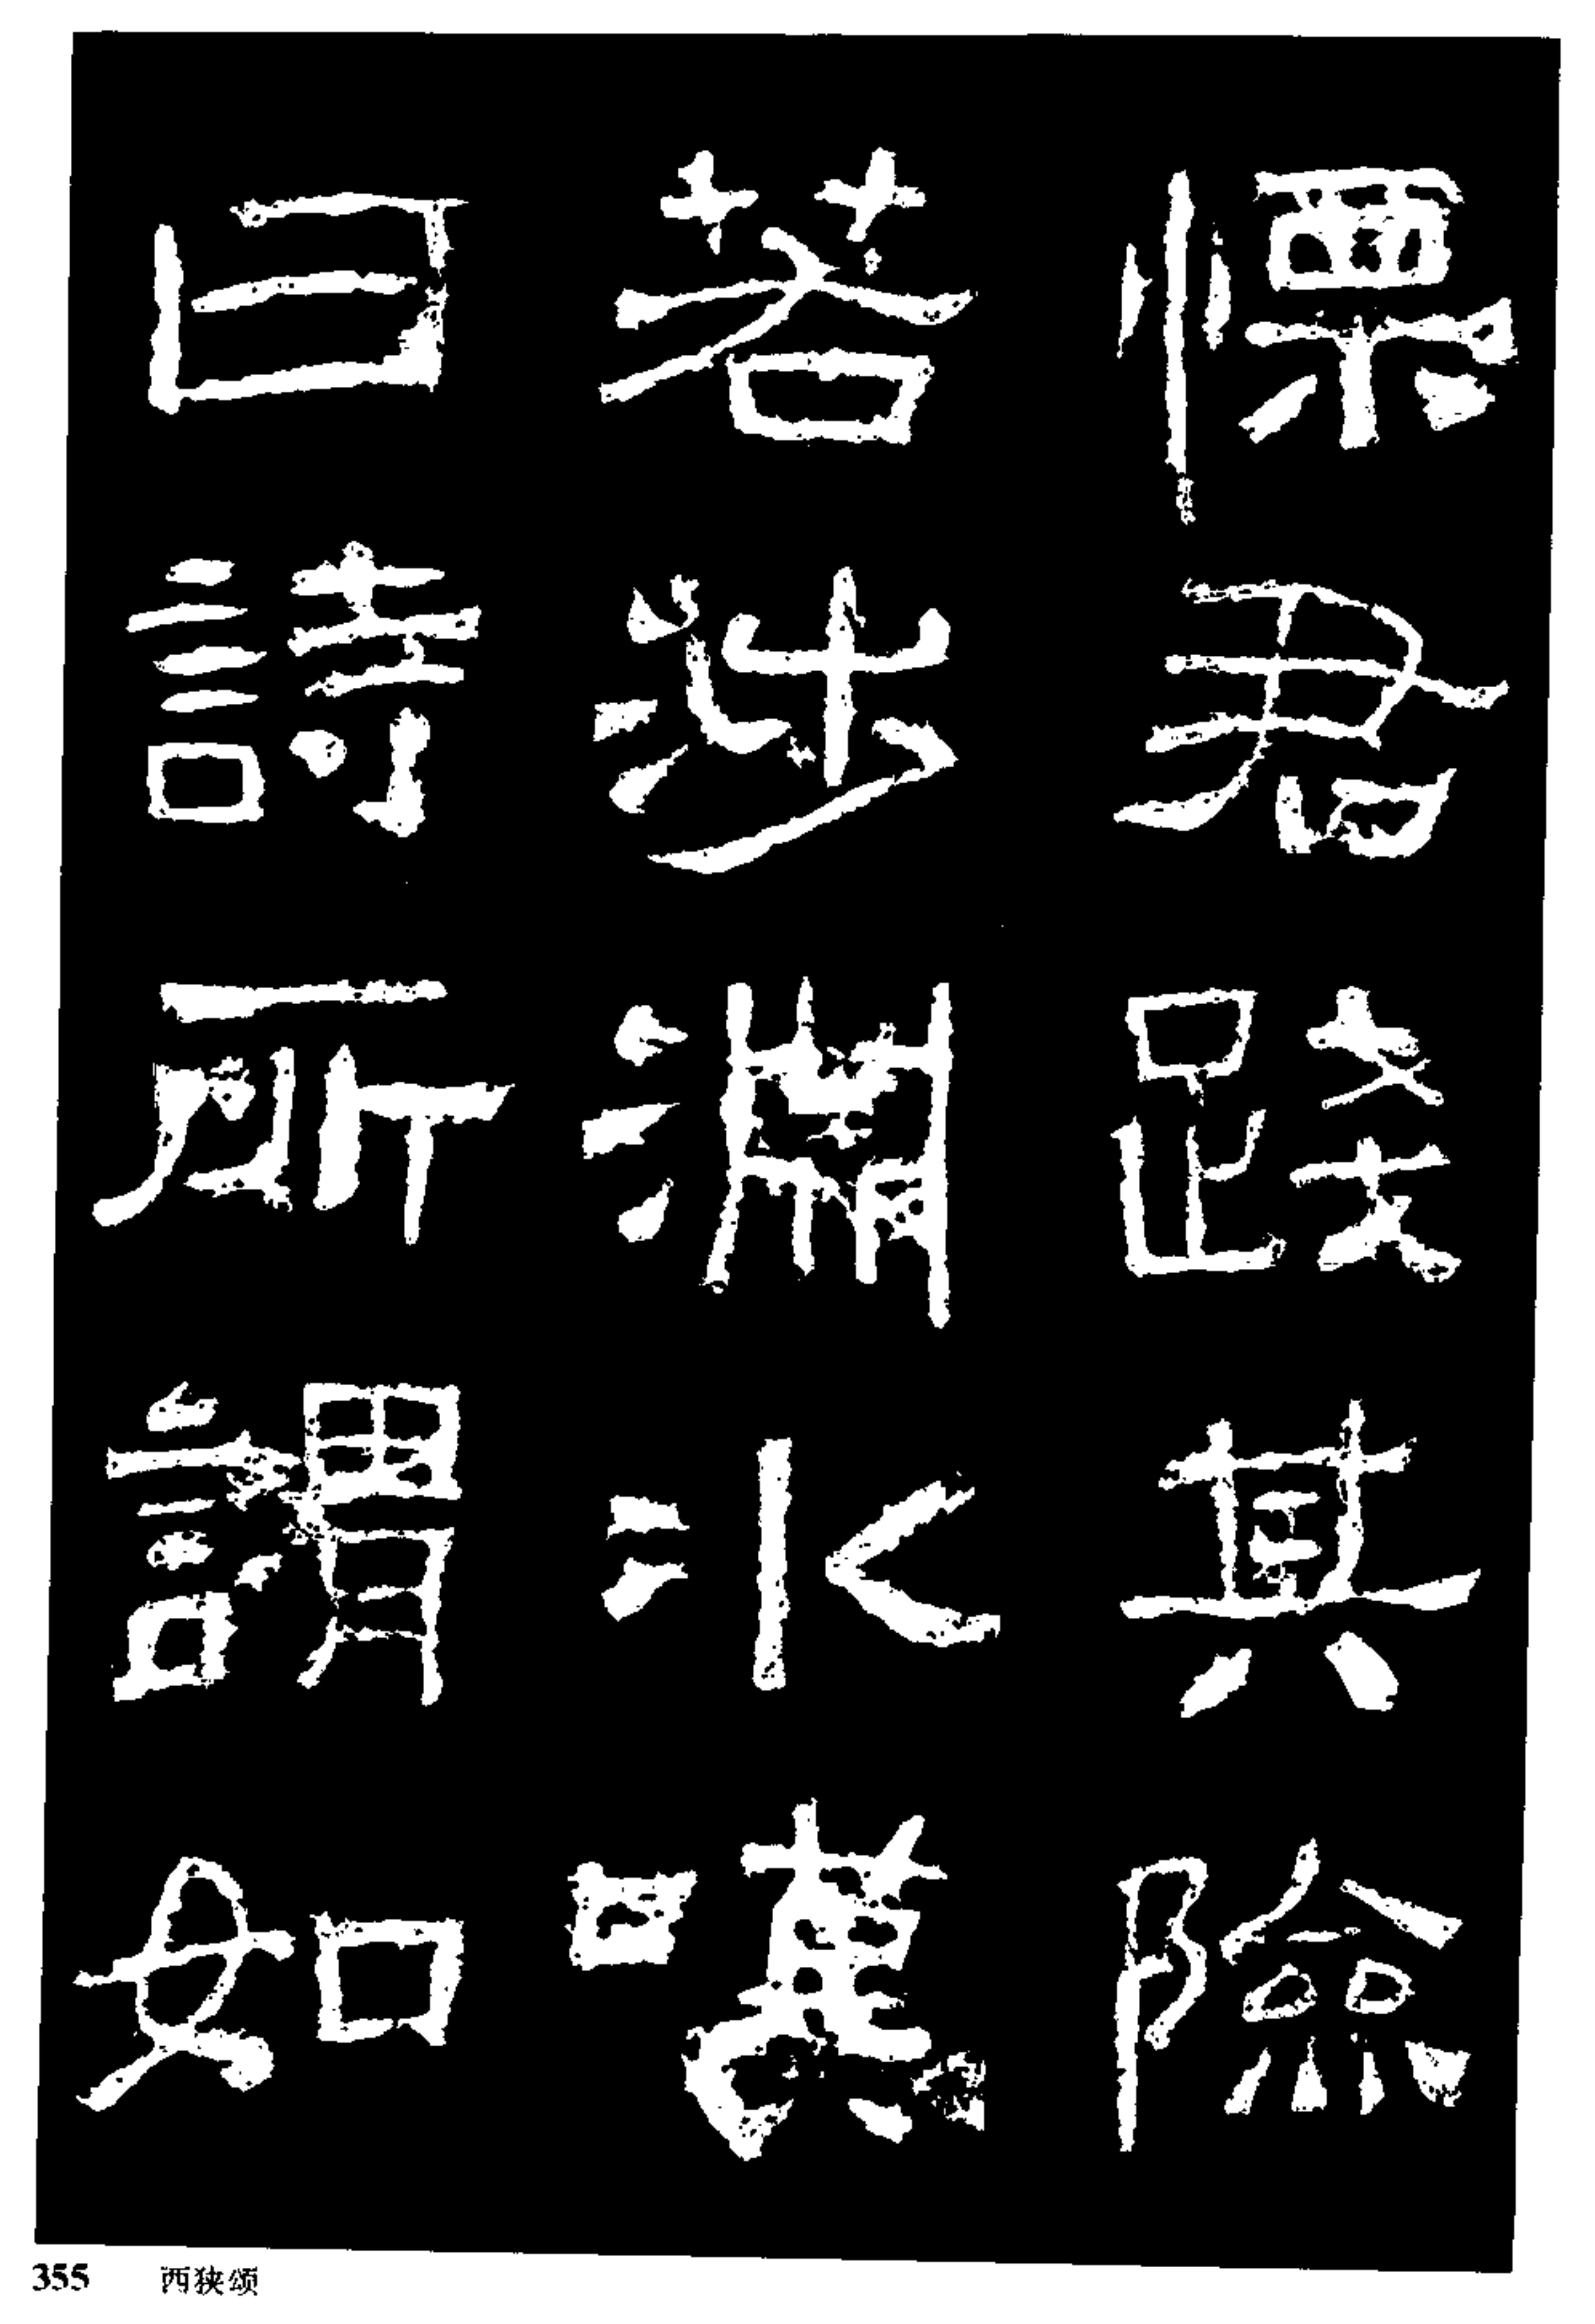 慄君踐其險
若涉淵冰嘆
曰詩所謂如
355 西狭颂